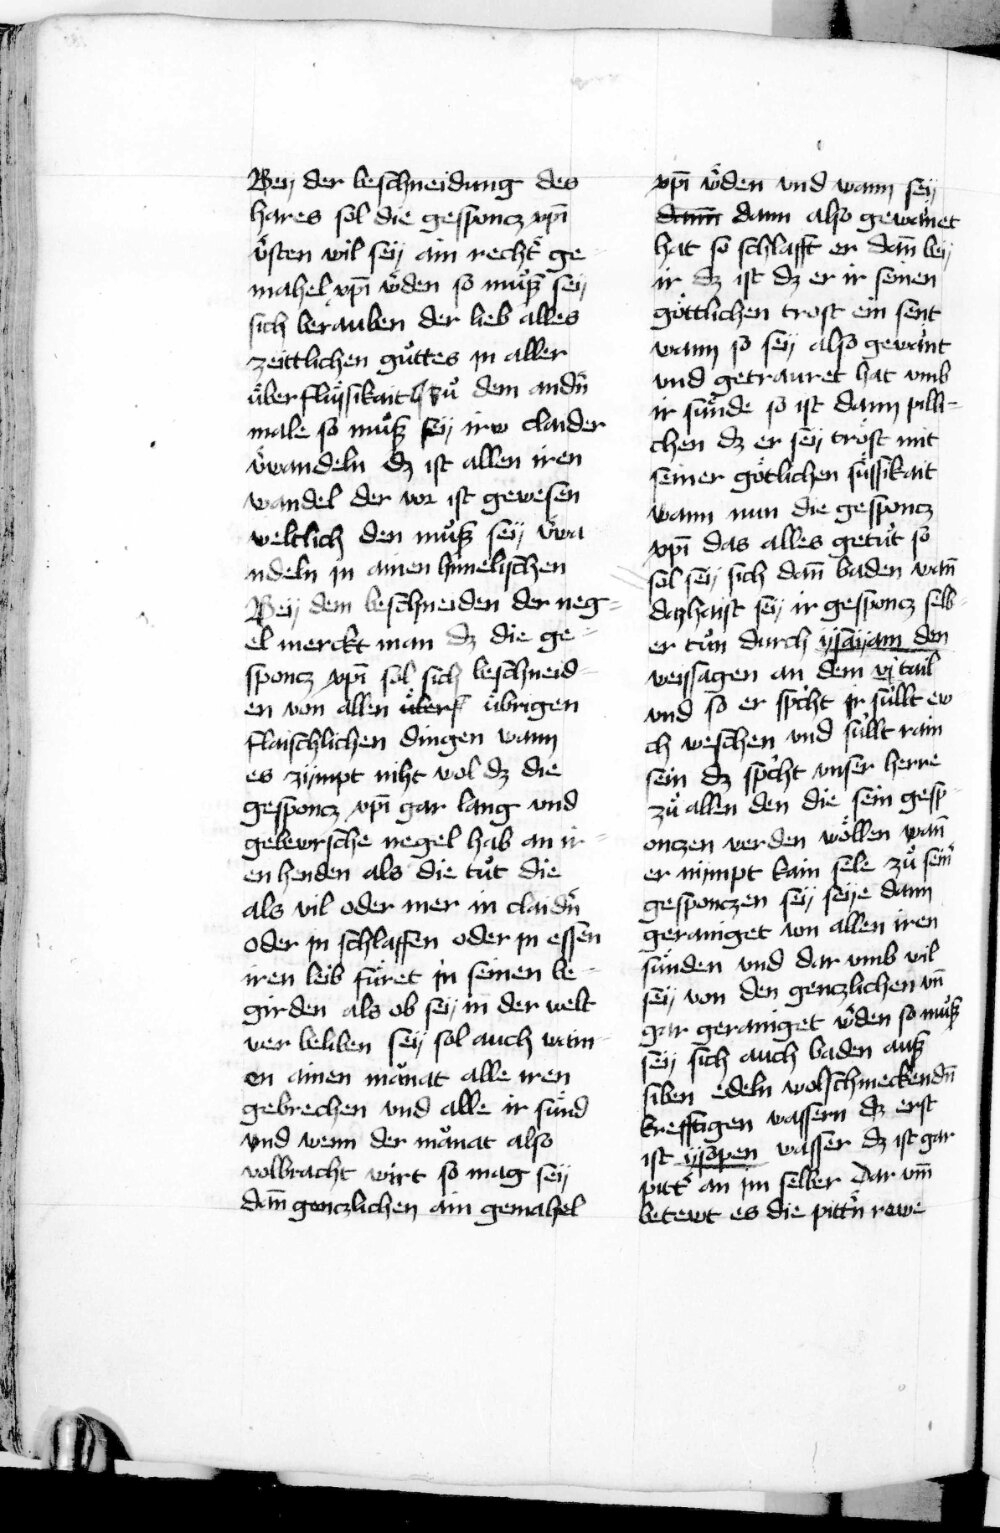 Beÿ der beschneidung des
hares sol die gesponcz xp̄i
v̈sten wil seÿ ain recht̄ ge-
mahel xp̄i w̄den so mu̇ß seÿ
sich berauben der lieb alles
zeittlichen gu̇ttes in aller
u̇berflüssikait Zu̇ dem andn̄
male so mu̇ß seÿ irw claider
v̄wandeln dz ist allen iren
wandel der vor ist gewesen
weltlich den mu̇ß seÿ v̄wa
ndeln in ainen himelischen
Beÿ dem beschneiden der neg-
el merckt man dz die ge-
sponcz xp̄i sol sich beschneid-
en von allen u̇bers u̇brigen
flaischlichen dingen wann
es zÿmpt niht wol dz die
gesponcz xp̄i gar lang vnd
gelewrsche negel hab an ir-
en henden als die tu̇t die
als vil oder mer in claidn̄
oder in schlaffen oder in essen
iren leib fu̇ret in seinen be-
girden als ob seÿ in der welt
wer beliben seÿ sol auch wain-
en ainen mȧnat alle iren
gebrechen vnd alle ir sünd
vnd wenn der mȧnat also
volbracht wirt so mag seÿ
dan̄ genczlichen ain gemahel
xp̄i w̄den vnd wann seÿ
dann dann also gewainet
hat so schlafft er dan̄ beÿ
ir dz ist dz er ir seinen
göttlichen trost ein sent
wann so seÿ also gewaint
vnd getrauret hat vmb
ir sünde so ist dann pilli-
chen dz er seÿ tröst mit
seiner götlichen süssikait
wann nun die gesponcz
xp̄i das alles getu̇t so
sol seÿ sich dan̄ baden wan̄
dazhaist seÿ ir gesponcz selb-
er tu̇n durch ÿsaÿam den
weissagen an dem vj tail
vnd so er spricht ir su̇llt ew
ch weschen vnd su̇llt rain
sein dz spricht vnser herre
zu̇ allen den die sein gesp-
onczen werden wöllen wan̄
er nÿmpt kain sele zu̇ sein̄
gesponczen seÿ seÿe dann
gerainiget von allen iren
sünden vnd dar vmb wil
seÿ von den genczlichen vn̄
gar gerainiget w̄den so mu̇ß
seÿ sich auch baden auß
siben edeln wolschmeckendn̄
krefftigen wassern dz erst
ist ÿsopen wasser dz ist gar
pitt̄ an im selber Dar vm̄
betewt es die pittn̄ rewe